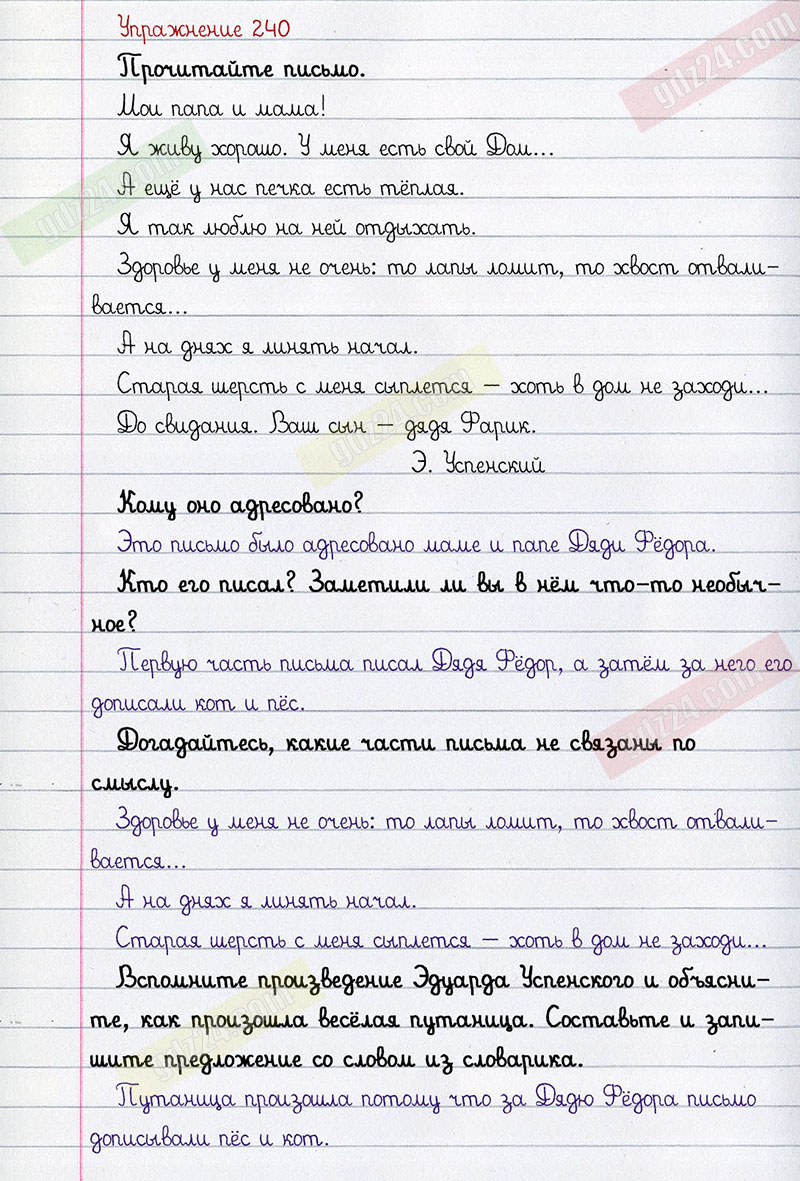 Упражнение 240
Прочитайте письмо.
gdz24.com
Мои папа и мама!
Я живу хорошо. У меня есть свой Дом...
А ещё у нас печка есть тёплая.
gdz24.com
Я так люблю на ней отдыхать.
Здоровье у меня не очень: то лапы ломит, то хвост отвали-
вается...
А на днях я линять начал.
Старая шерсть с меня сыплется – хоть в дом не заходи...
gdz24.com
До свидания. Ваш сын – дядя Фарик.
Э. Успенский
Кому оно адресовано?
Это письмо было адресовано маме и папе Дяди Фёдора.
Кто его писал? Заметили ли вы в нём что-то необыч-
ное?
Первую часть письма писал Дядя Фёдор, а затём за него его
дописали кот и пёс.
gdz24.com
Догадайтесь, какие части письма не связаны по
смыслу.
Здоровье у меня не очень: то лапы ломит, то хвост отвали-
вается...
А на днях я линять начал.
Старая шерсть с меня сыплется – хоть в дом не заходи...
Вспомните произведение Эдуарда Успенского и объясни-
те, как произошла весёлая путаница. Составьте и запи-
шите предложение со словом из словарика.
gdz24.com
Путаница произашла потому что за Дядю Фёдора письмо
дописывали пёс и кот.